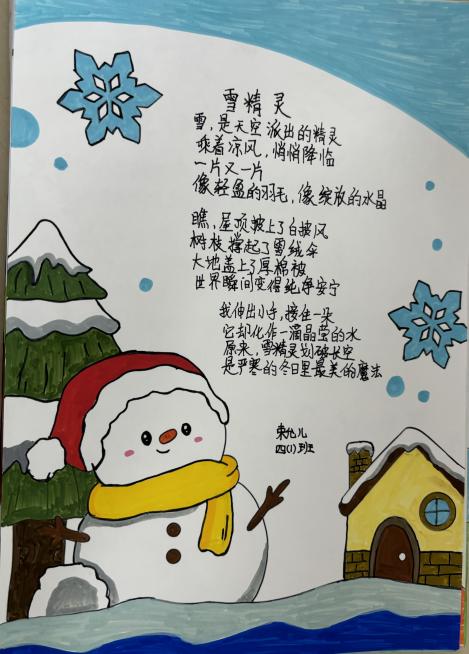 雪精灵
雪，是天空派出的精灵
乘着凉风，悄悄降临
一片又一片
像轻盈的羽毛，像绽放的水晶
瞧，屋顶披上了白披风
树枝撑起了雪绒伞
大地盖上了厚棉被
世界瞬间变得纯净安宁
我伸出小手，接住一朵
它却化作一滴晶莹的水
原来，雪精灵划破长空
是严寒的冬日里最美的魔法
四(1)班